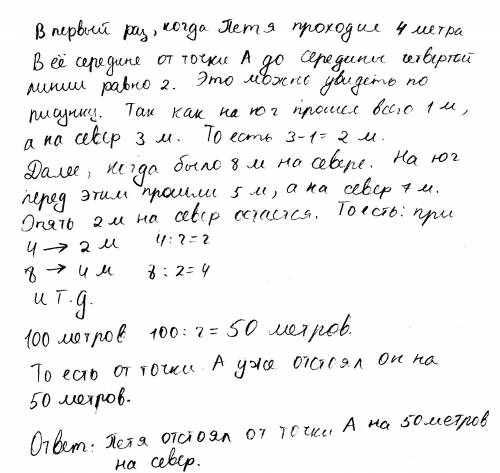 В первый раз, когда Петя проходил 4 метра
В её середине от точки А до середины четвертой
линии равно 2. Это можно увидеть по
рисунку. Так как на юг прошел всего 1 м,
а на север 3 м. То есть 3-1= 2 м.
Далее, когда было 8 м на севере. На юг
перед этим прошли 5 м, а на север 7 м.
Опять 2 м на север остается. То есть: при
4 → 2 м 4:2=2
8 → 4 м 8:2=4
и т.д.
100 метров 100:2= 50 метров.
То есть от точки А уже отстоял он на
50 метров.
Ответ: Петя отстоял от точки А на 50 метров
на север.